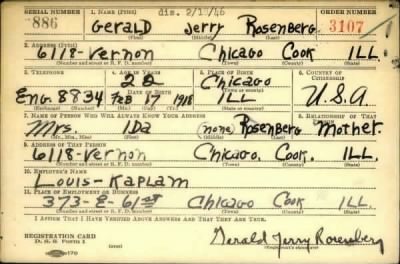 SERIAL NUMBER 1. NAME (Print) dis. 2/1/46 ORDER NUMBER
886 Gerald Jerry Rosenberg 3107
(First) (Middle) (Last)
2. ADDRESS (Print)
6118-Vernon Chicago Cook ILL.
(Number and street or R. F. D. number) (Town) (County) (State)
3. TELEPHONE 4. AGE IN YEARS 5. PLACE OF BIRTH 6. COUNTRY OF CITIZENSHIP
22 Chicago
DATE OF BIRTH (Town or county)
Eng. 8834 Feb 17 1918 ILL U.S.A
(Exchange) (Number) (Mo.) (Day) (Yr.) (State or country)
7. NAME OF PERSON WHO WILL ALWAYS KNOW YOUR ADDRESS 8. RELATIONSHIP OF THAT PERSON
Mrs Ida (none) Rosenberg Mother.
(Mr., Mrs., Miss) (First) (Middle) (Last)
9. ADDRESS OF THAT PERSON
6118-Vernon Chicago. Cook. ILL.
(Number and street or R. F. D. number) (Town) (County) (State)
10. EMPLOYER'S NAME
Louis-Kaplam
11. PLACE OF EMPLOYMENT OR BUSINESS
373-E-61st Chicago Cook ILL
(Number and street or R. F. D. number) (Town) (County) (State)
I AFFIRM THAT I HAVE VERIFIED ABOVE ANSWERS AND THAT THEY ARE TRUE.
REGISTRATION CARD
D. S. S. Form 1 Gerald Jerry Rosenberg
(Registrant's signature)